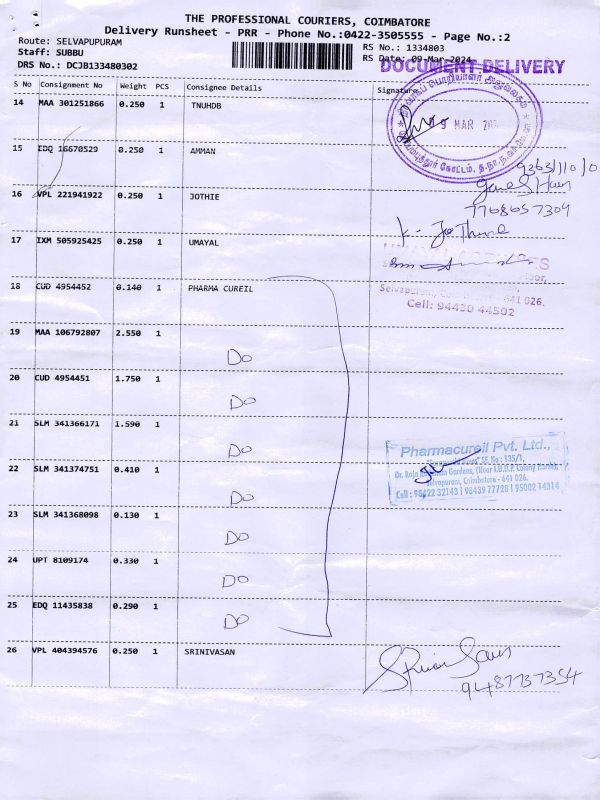 THE PROFESSIONAL COURIERS, COIMBATORE
Delivery Runsheet - PRR - Phone No.:0422-3505555 - Page No.:2
Route: SELVAPUPURAM
Staff: SUBBU
DRS No.: DCJB133480302
RS No.: 1334803
RS Date: 09-Mar-2024
DOCUMENT DELIVERY
S No Consignment No Weight PCS Consignee Details Signature
14 MAA 301251866 0.250 1 TNUHDB
9 MAR
15 EDQ 16670529 0.250 1 AMMAN
16 VPL 221941922 0.250 1 JOTHIE
7768657309
17 IXM 505925425 0.250 1 UMAYAL
18 CUD 4954452 0.140 1 PHARMA CUREIL
641 026.
Cell: 94430 44502
19 MAA 106792807 2.550 1 Do
20 CUD 4954451 1.750 1 Do
21 SLM 341366171 1.590 1 Do
Pharmacureil Pvt. Ltd.,
SF. No : 135/1,
Selvapuram, Coimbatore - 641 026.
Cell : 98422 32143 | 98439 77728 | 95002 14314
22 SLM 341374751 0.410 1 Do
23 SLM 341368098 0.130 1 Do
24 UPT 8109174 0.330 1 Do
25 EDQ 11435838 0.290 1 Do
26 VPL 404394576 0.250 1 SRINIVASAN
9487737354